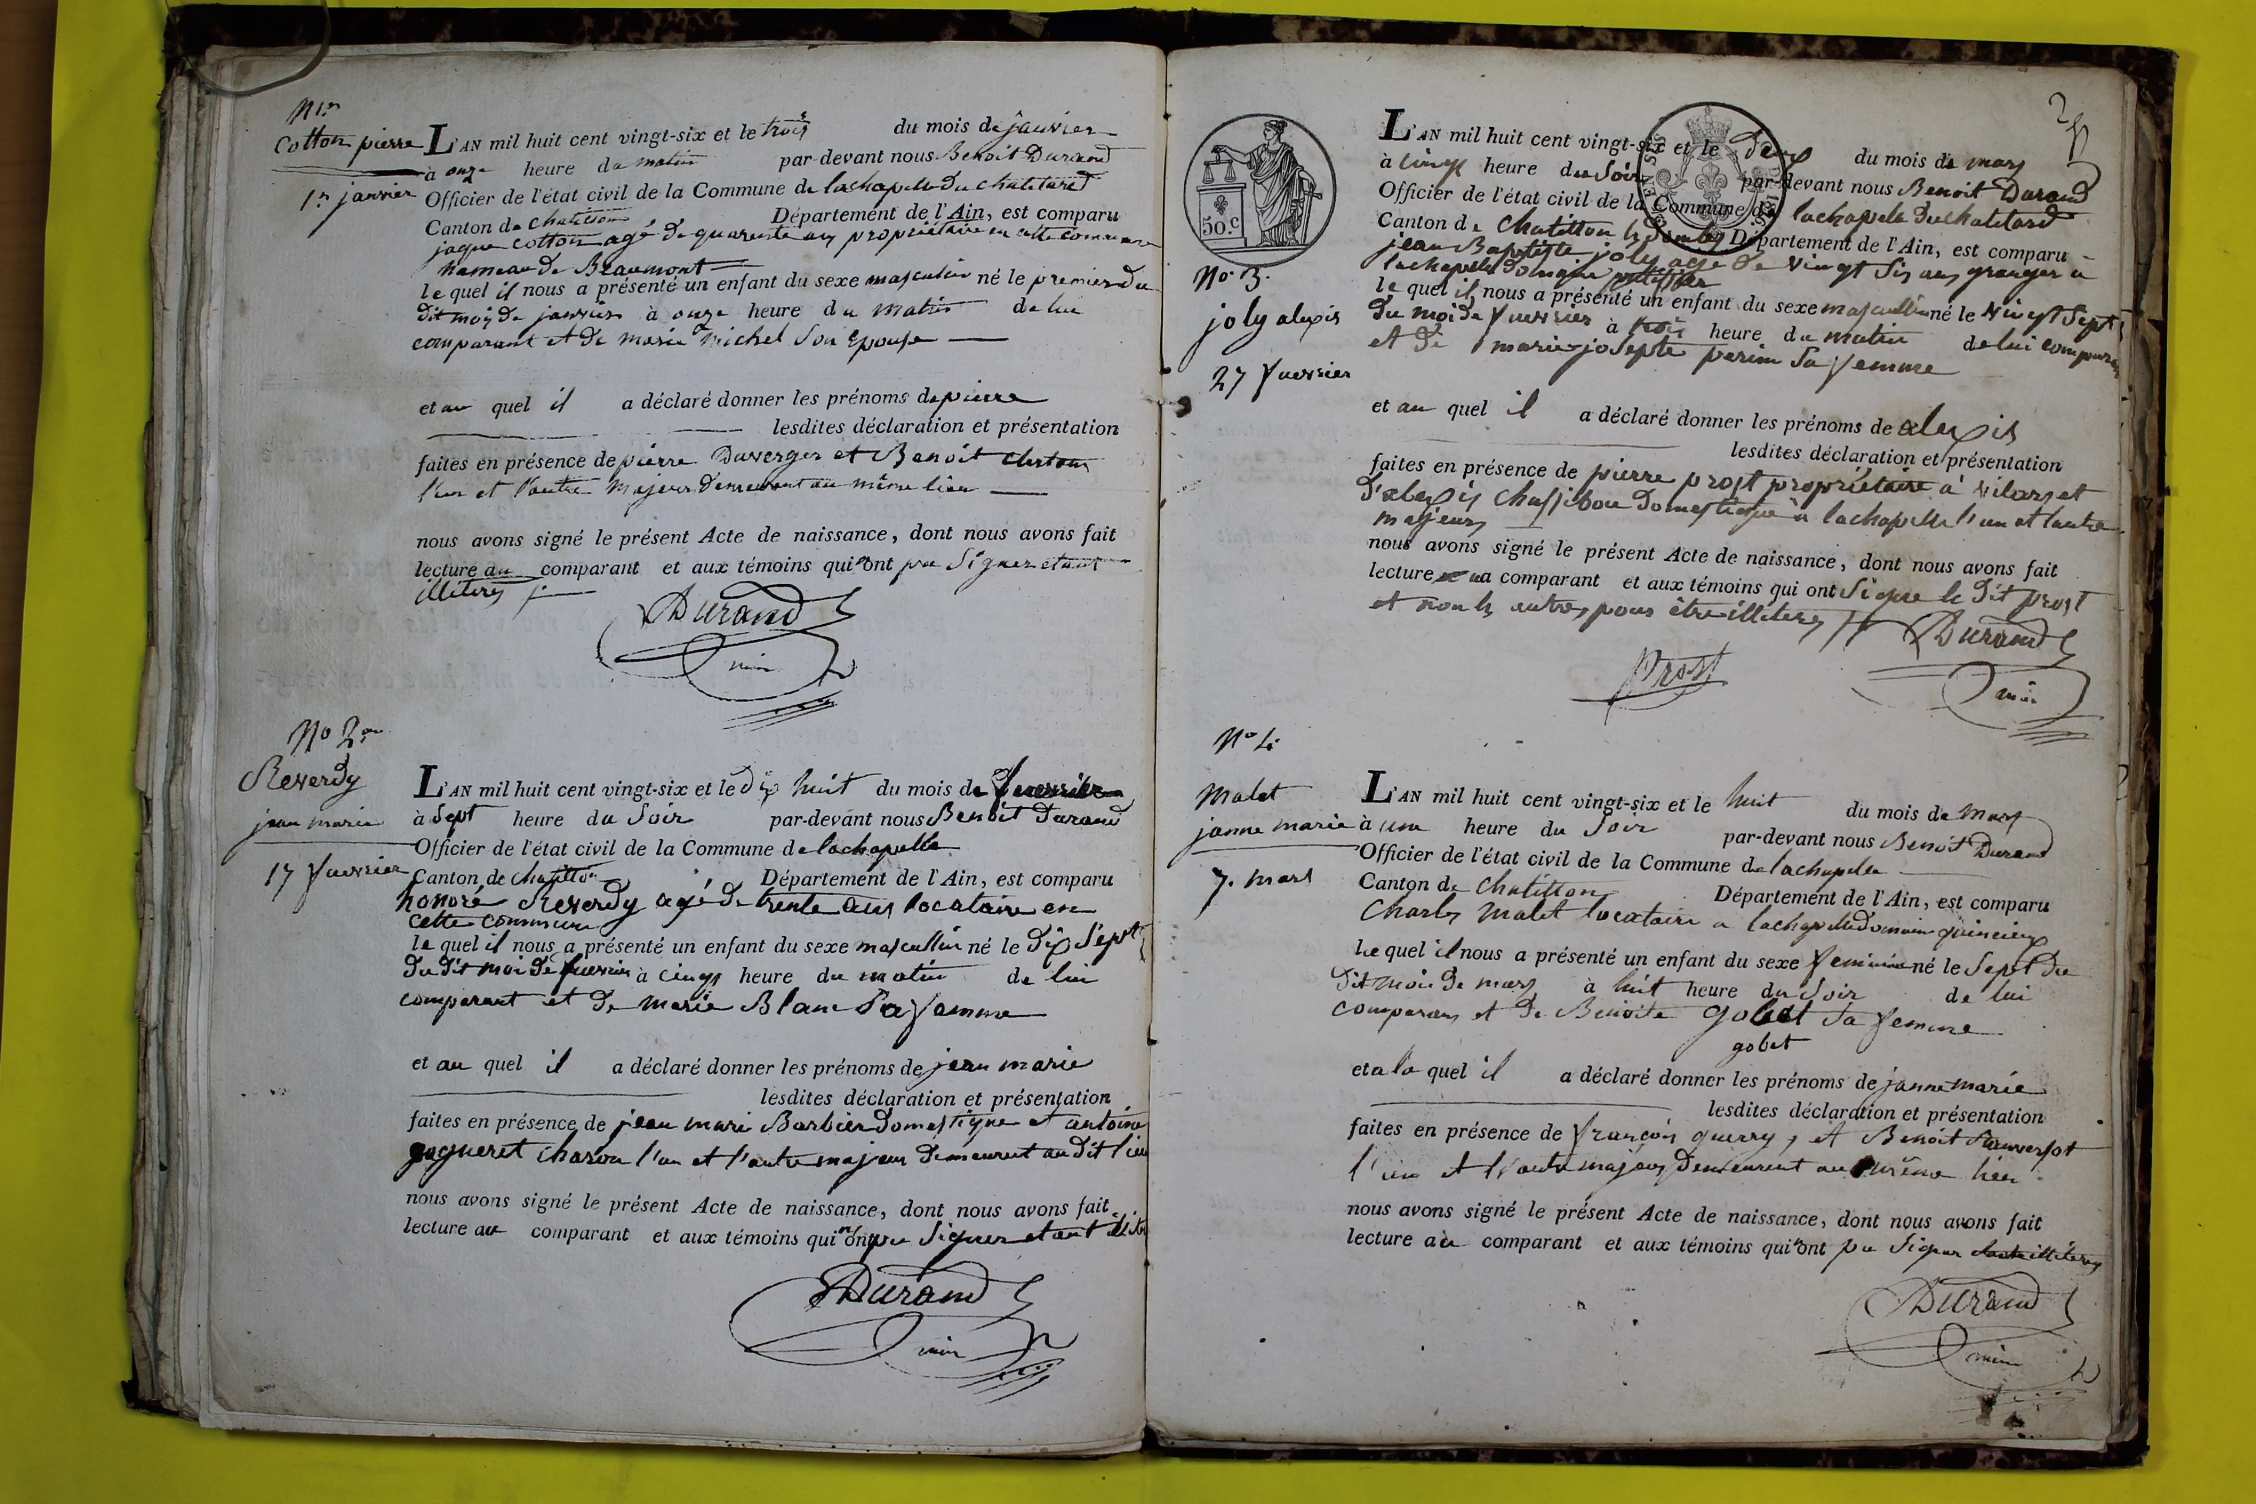 N 1er
Cotton pierre
1er janvier
L'AN mil huit cent vingt-six et le trois du mois de janvier
à onze heure du matin par-devant nous Benoit Durand
Officier de l'état civil de la Commune de lachapelle du chatelard
Canton de chatillon Département de l'Ain, est comparu
jaque cotton agé de quarente ans propriétaire en cette commune
hameau de Beaumont
le quel il nous a présenté un enfant du sexe masculin né le premier du
dit mois de janvier à onze heure du matin de lui
comparant et de marie michel son Epouse
et au quel il a déclaré donner les prénoms de pierre
lesdites déclaration et présentation
faites en présence de pierre Duverger et Benoit
l'un et l'autre majeurs demeurant au même lieu
nous avons signé le présent Acte de naissance, dont nous avons fait
lecture au comparant et aux témoins qui n'ont pu signer etant
illiterés
Durand
mire
No 2
Reverdy
jean marie
17 fuevrier
L'AN mil huit cent vingt-six et le dix huit du mois de fuevrier
à sept heure du soir par-devant nous Benoit Durand
Officier de l'état civil de la Commune de lachapelle
Canton de chatillon Département de l'Ain, est comparu
honoré Reverdy agé de trente ans locataire en
cette commune
le quel il nous a présenté un enfant du sexe mascullin né le dix sept
du dit moi de fuevrier à cinq heure du matin de lui
comparant et de marie Blanc sa femme
et au quel il a déclaré donner les prénoms de jean marie
lesdites déclaration et présentation
faites en présence de jean mari Barbier domestique et antoine
gogueret charon l'un et l'autre majeur demeurent au dit lieu
nous avons signé le présent Acte de naissance, dont nous avons fait
lecture au comparant et aux témoins qui n'ont pu signer etant
Durand
mire
2
50.c
No 3.
joly alexis
27 fuevrier
L'AN mil huit cent vingt-six et le deux du mois de mars
à cinq heure du soir par-devant nous Benoit Durand
Officier de l'état civil de la Commune de lachapelle du chatelard
Canton de Chatillon les Dombes Département de l'Ain, est comparu
jean Baptiste joly agé de vingt six ans granger a
lachapelle domaine
le quel il nous a présenté un enfant du sexe mascullin né le vingt sept
du moi de fuevrier à trois heure du matin de lui comparant
et de marie josepte perin sa femme
et au quel il a déclaré donner les prénoms de alexis
lesdites déclaration et présentation
faites en présence de pierre prost propriétaire à vilars et
d'alexis domestique à lachapelle l'un et lautre
majeurs
nous avons signé le présent Acte de naissance, dont nous avons fait
lecture au comparant et aux témoins qui ont signe le dit prost
et non les autres pour être illiterés
Durand
mire
Prost
No 4
Malet
janne marie
7. mars
L'AN mil huit cent vingt-six et le huit du mois de mars
à une heure du soir par-devant nous Benoit Durand
Officier de l'état civil de la Commune de lachapelle
Canton de Chatillon Département de l'Ain, est comparu
Charles Malet locataire a lachapelle domaine
le quel il nous a présenté un enfant du sexe feminin né le sept du
dit mois de mars à huit heure du soir de lui
comparans et de Benoite gobet sa femme
gobet
et a la quel il a déclaré donner les prénoms de janne marie
lesdites déclaration et présentation
faites en présence de françois guerry, et Benoit
l'un et l'autre majeurs demeurent au même lieu
nous avons signé le présent Acte de naissance, dont nous avons fait
lecture au comparant et aux témoins qui n'ont pu signer illiterés
Durand
mire